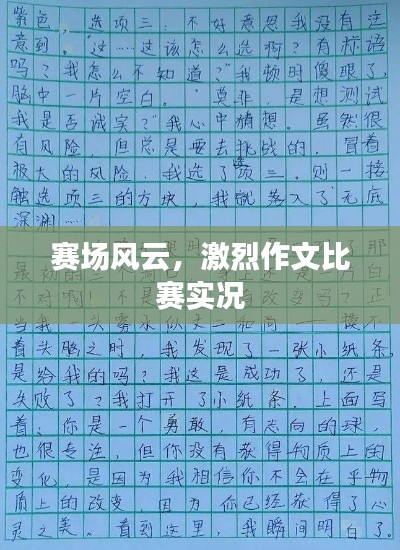 紫色，选项三：不好意思我没有注
意到。”“这……这该怎么选啊？有标语
吗？我怎么不知道？”我顿时傻眼了，
脑中一片空白。“莫非，是想测试
我是否诚实？”我心中猜想。虽然很
有风险，但总是要去挑战的，冒着
极大的风险，我选了选项三。刚一接
触选项三的方块，我就落入了无底
深渊……
赛场风云，激烈作文比
赛实况
着头脑之时，我发现了一张小纸条。
是给我的吗？我这是成功了，还是
失败了？我打开了小纸条，上面写
着：你是一个勇敢，有志向的球，
也很专注，但你没有获得物质上的
变化，是因为我相信你不会在乎物
质上的改变，因为你已经获得了心
灵之美。看到这里，我瞬间明白了。